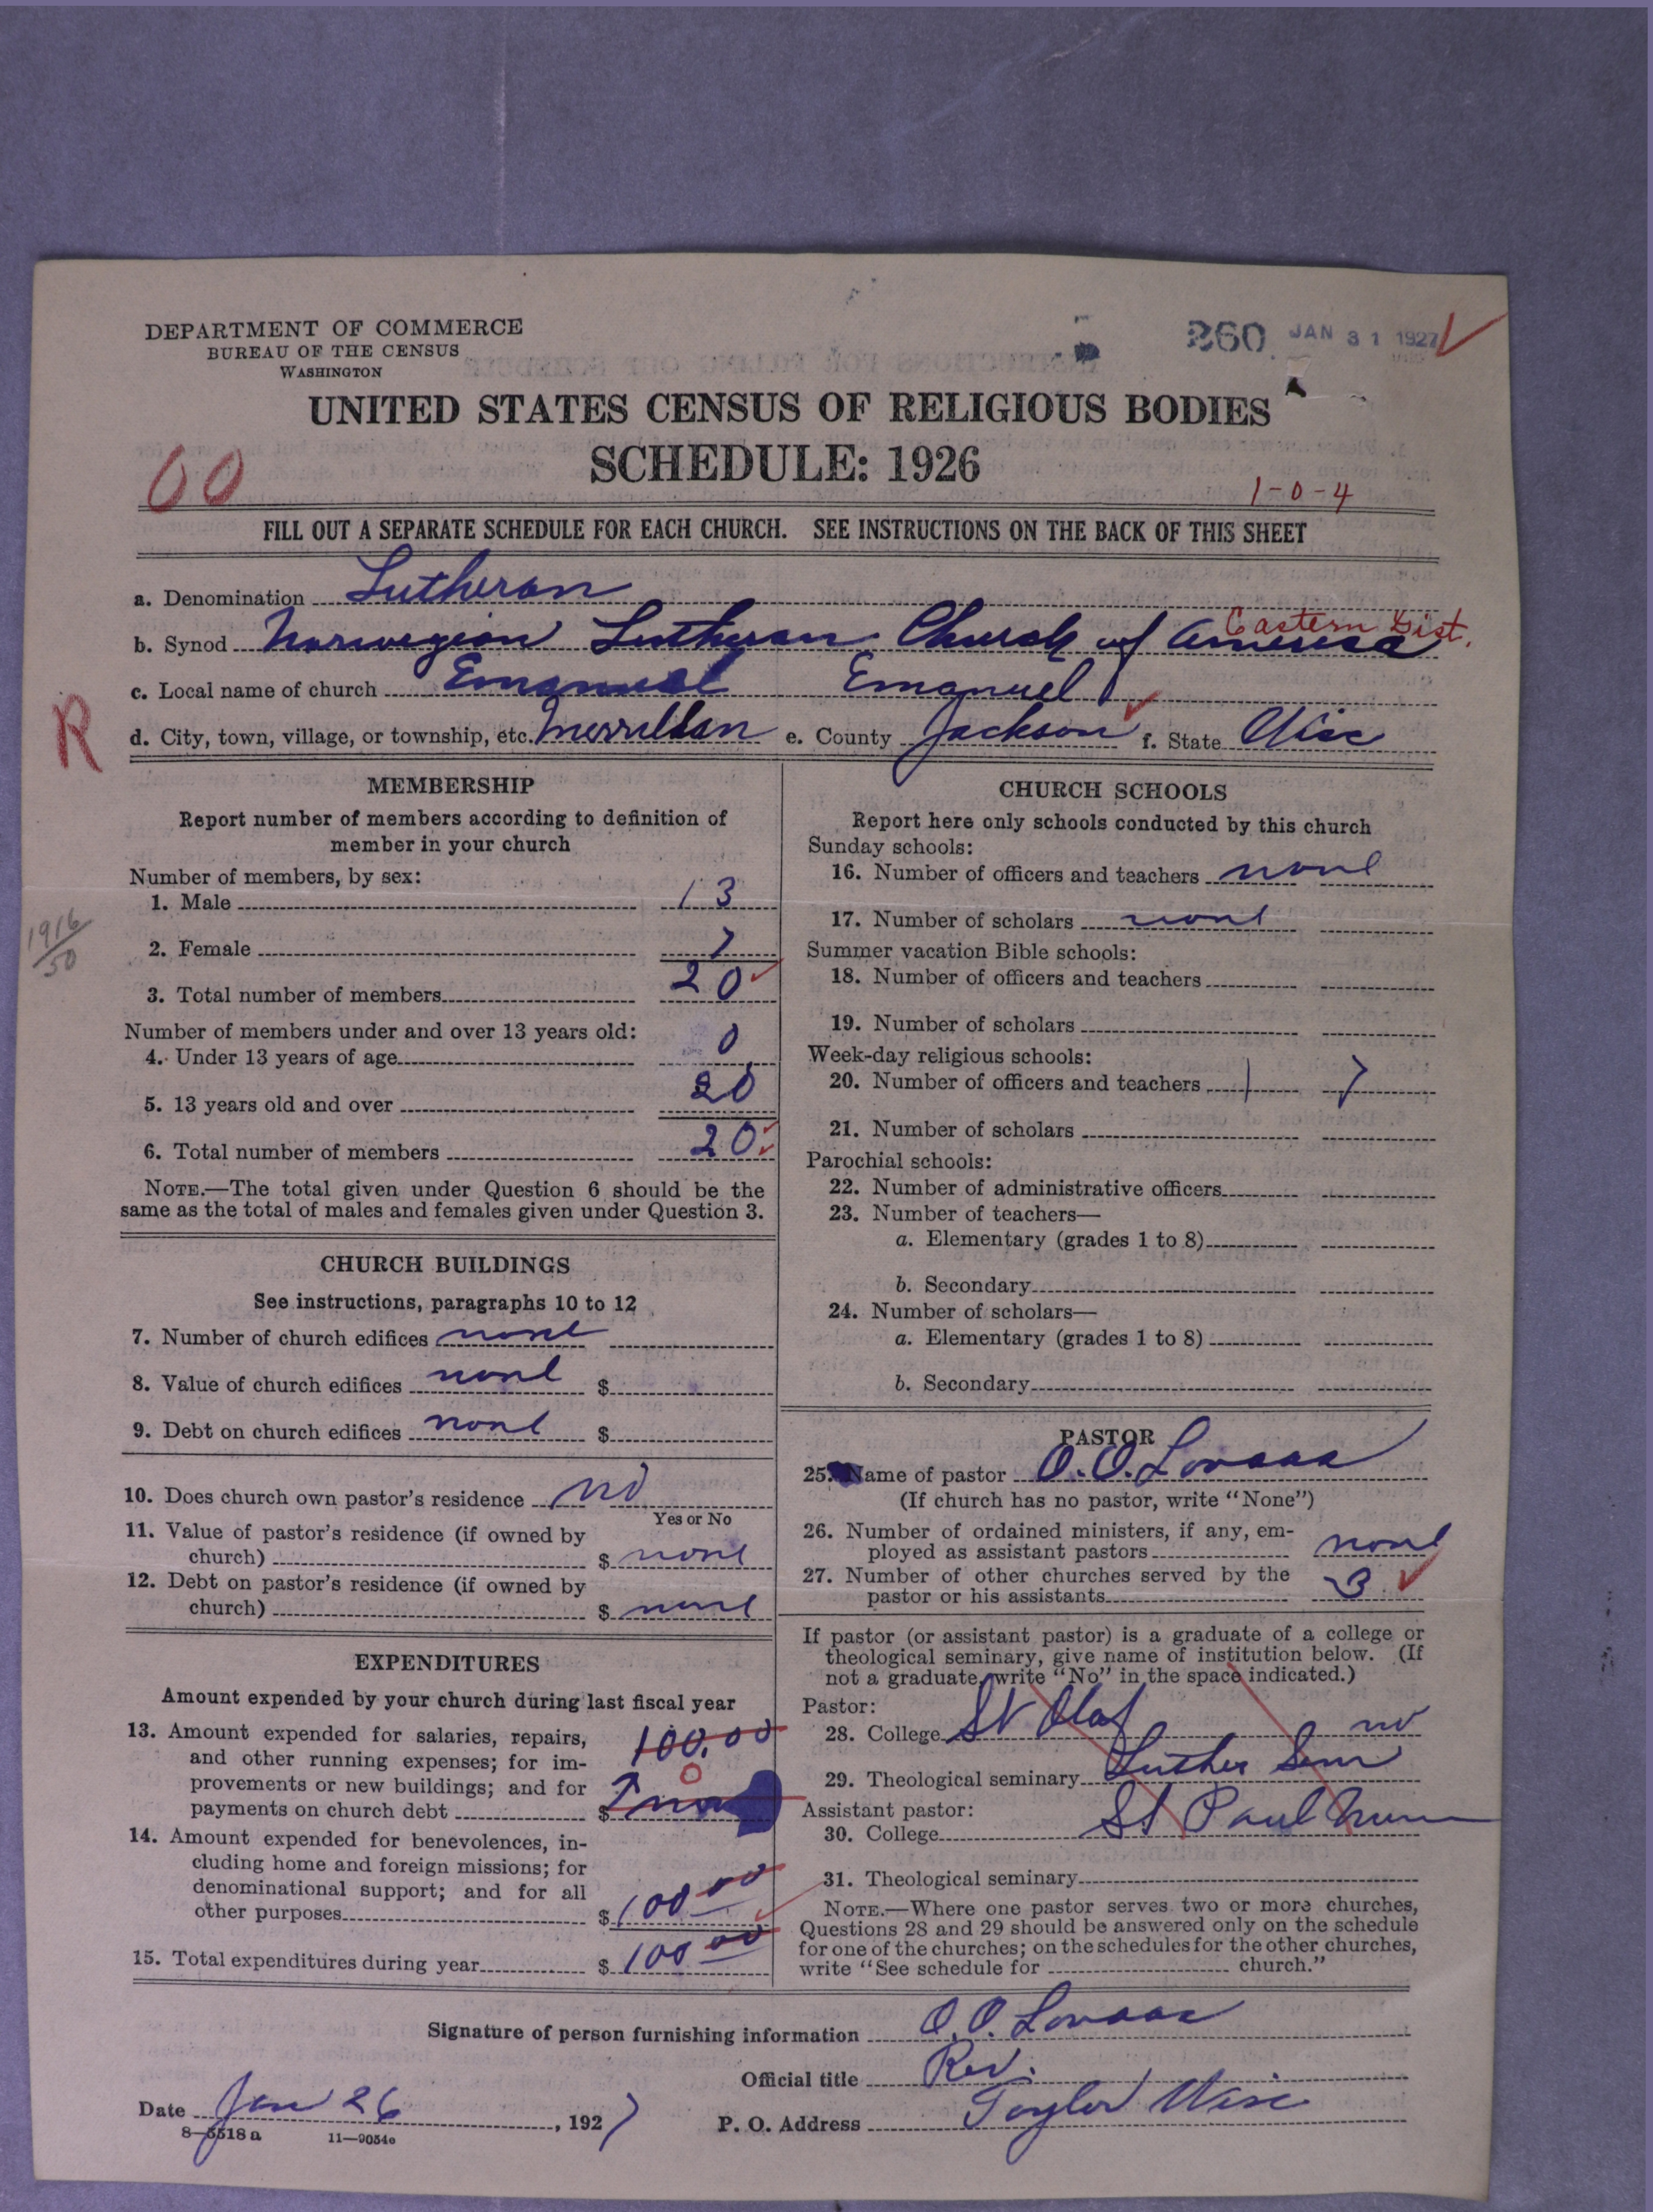 DEPARTMENT OF COMMERCE
BUREAU OF THE CENSUS
WASHINGTON
260 JAN 31 1927
UNITED STATES CENSUS OF RELIGIOUS BODIES
SCHEDULE: 1926
60
1-0-4
FILL OUT A SEPARATE SCHEDULE FOR EACH CHURCH. SEE INSTRUCTIONS ON THE BACK OF THIS SHEET
a. Denomination Lutheran
Eastern Dist.
b. Synod Norwegian Lutheran Church of America
c. Local name of church Emanuel Emanuel
R
d. City, town, village, or township, etc. Merrillan e. County Jackson f. State Wisc
MEMBERSHIP
Report number of members according to definition of
member in your church
Number of members, by sex:
1. Male 13
1916
50
2. Female 7
3. Total number of members 20
Number of members under and over 13 years old:
4. Under 13 years of age 0
5. 13 years old and over 20
6. Total number of members 20
NOTE.—The total given under Question 6 should be the
same as the total of males and females given under Question 3.
CHURCH BUILDINGS
See instructions, paragraphs 10 to 12
7. Number of church edifices none
8. Value of church edifices none $
9. Debt on church edifices none $
10. Does church own pastor's residence no
Yes or No
11. Value of pastor's residence (if owned by
church) $ none
12. Debt on pastor's residence (if owned by
church) $ none
EXPENDITURES
Amount expended by your church during last fiscal year
13. Amount expended for salaries, repairs, 100.00
and other running expenses; for im-
provements or new buildings; and for 0
payments on church debt $
14. Amount expended for benevolences, in-
cluding home and foreign missions; for
denominational support; and for all
other purposes $ 100 00
15. Total expenditures during year $ 100 00
CHURCH SCHOOLS
Report here only schools conducted by this church
Sunday schools:
16. Number of officers and teachers none
17. Number of scholars none
Summer vacation Bible schools:
18. Number of officers and teachers
19. Number of scholars
Week-day religious schools:
20. Number of officers and teachers 1 7
21. Number of scholars
Parochial schools:
22. Number of administrative officers
23. Number of teachers—
a. Elementary (grades 1 to 8)
b. Secondary
24. Number of scholars—
a. Elementary (grades 1 to 8)
b. Secondary
PASTOR
25. Name of pastor O. O. Lovaas
(If church has no pastor, write "None")
26. Number of ordained ministers, if any, em-
ployed as assistant pastors none
27. Number of other churches served by the
pastor or his assistants 3
If pastor (or assistant pastor) is a graduate of a college or
theological seminary, give name of institution below. (If
not a graduate, write "No" in the space indicated.)
Pastor:
28. College St Olaf no
29. Theological seminary Luther Sem
Assistant pastor:
30. College St Paul Minn
31. Theological seminary
NOTE.—Where one pastor serves two or more churches,
Questions 28 and 29 should be answered only on the schedule
for one of the churches; on the schedules for the other churches,
write "See schedule for church."
Signature of person furnishing information O. O. Lovaas
Official title Rev.
Date Jan 26, 1927
P. O. Address Taylor Wisc
8—5518a 11—9054c